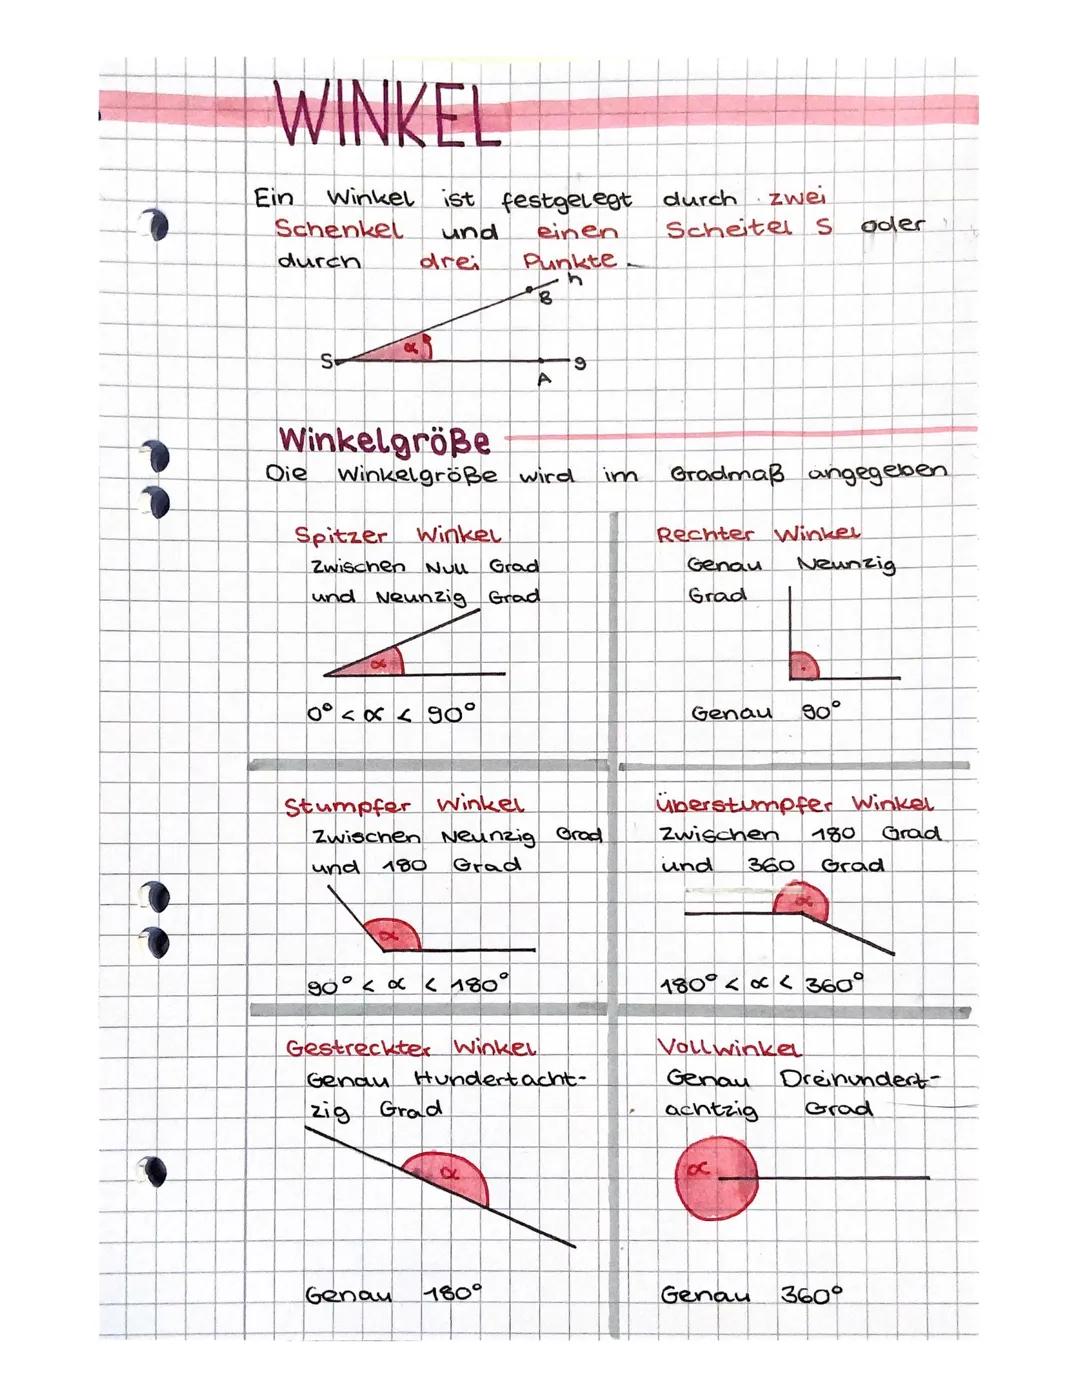 WINKEL
Ein Winkel ist festgelegt durch zwei
Schenkel und einen Scheitel S oder
durch drei Punkte.
h
B
α
S
g
A
Winkelgröße
Die Winkelgröße wird im Gradmaß angegeben
Spitzer Winkel
Zwischen Null Grad
und Neunzig Grad
α
0° < α < 90°
Rechter Winkel
Genau Neunzig
Grad
Genau 90°
Stumpfer Winkel
Zwischen Neunzig Grad
und 180 Grad
α
90° < α < 180°
Überstumpfer Winkel
Zwischen 180 Grad
und 360 Grad
α
180° < α < 360°
Gestreckter Winkel
Genau Hundertacht-
zig Grad
α
Genau 180°
Vollwinkel
Genau Dreihundert-
achtzig Grad
α
Genau 360°